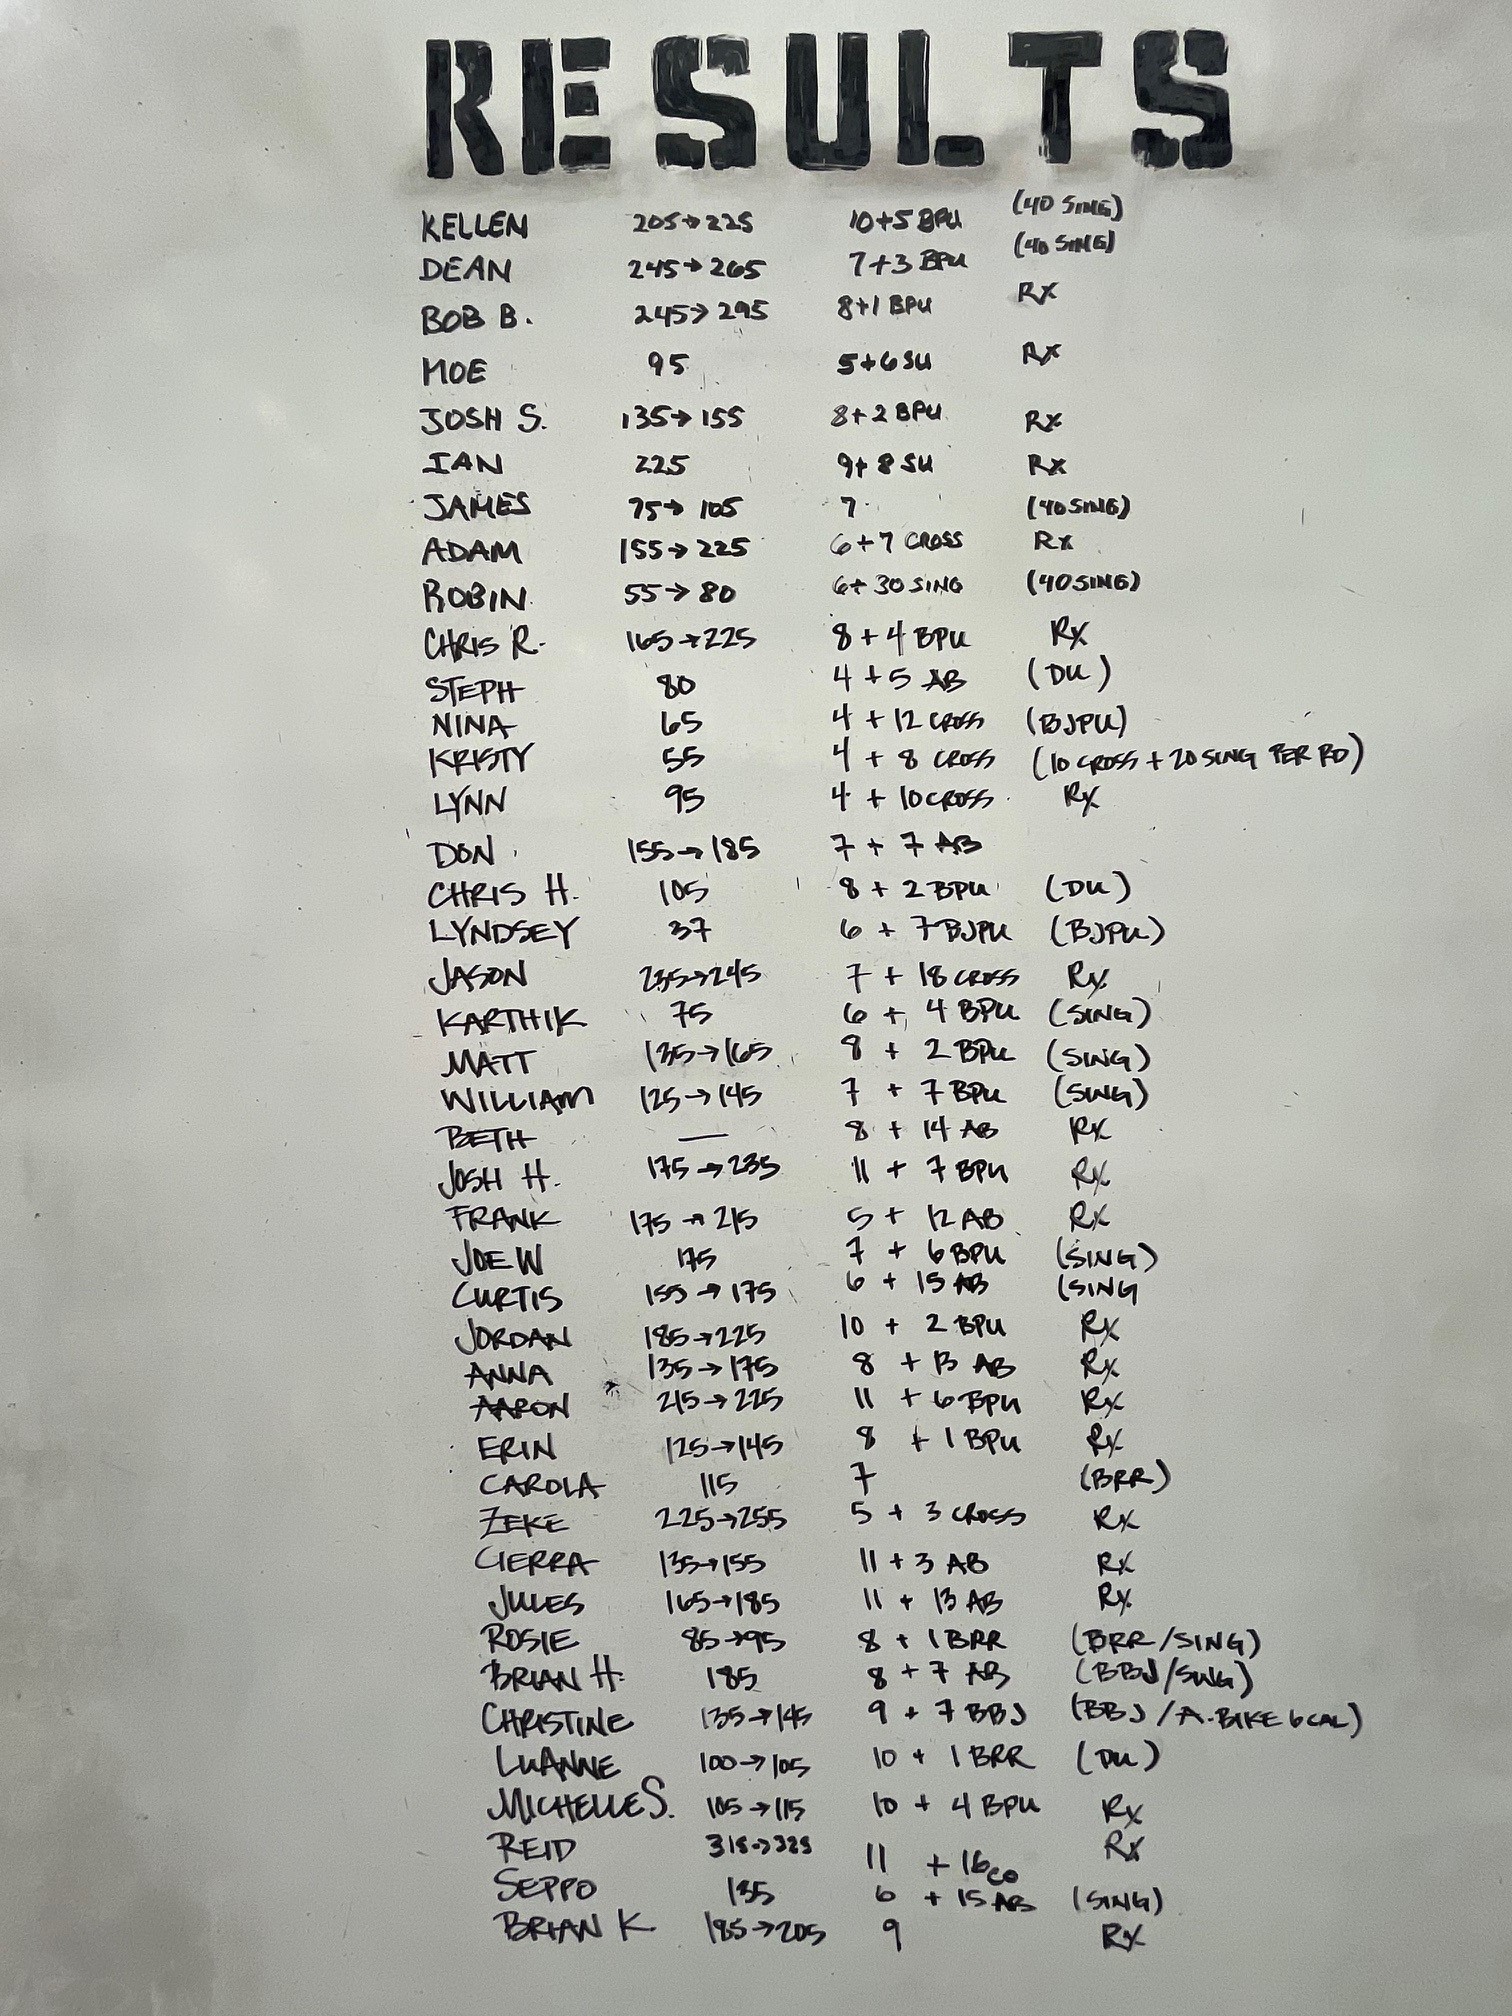 RESULTS
KELLEN 205→225 10+5 BPU (40 SING)
DEAN 245→265 7+3 BPU (40 SING)
BOB B. 245→295 8+1 BPU Rx
MOE 95 5+6 SU Rx
JOSH S. 135→155 8+2 BPU Rx
IAN 225 9+8 SU Rx
JAMES 75→105 7 (40 SING)
ADAM 155→225 6+7 CROSS Rx
ROBIN 55→80 6+30 SING (40 SING)
CHRIS R. 165→225 8+4 BPU Rx
STEPH 80 4+5 AB (DU)
NINA 65 4+12 CROSS (BJPU)
KRISTY 55 4+8 CROSS (10 CROSS + 20 SING PER RD)
LYNN 95 4+10 CROSS Rx
DON 155→185 7+7 AB
CHRIS H. 105 8+2 BPU (DU)
LYNDSEY 37 6+7 BJPU (BJPU)
JASON 235→245 7+18 CROSS Rx
KARTHIK 75 6+4 BPU (SING)
MATT 135→165 8+2 BPU (SING)
WILLIAM 125→145 7+7 BPU (SING)
BETH — 8+14 AB Rx
JOSH H. 175→235 11+7 BPU Rx
FRANK 175→215 5+12 AB Rx
JOE W 175 7+6 BPU (SING)
CURTIS 155→175 6+15 AB (SING
JORDAN 185→225 10+2 BPU Rx
ANNA 135→175 8+13 AB Rx
AARON 215→225 11+6 BPU Rx
ERIN 125→145 8+1 BPU Rx
CAROLA 115 7 (BRR)
ZEKE 225→255 5+3 CROSS Rx
CIERRA 135→155 11+3 AB Rx
JULES 165→185 11+13 AB Rx
ROSIE 85→95 8+1 BRR (BRR/SING)
BRIAN H. 185 8+7 AB (BBJ/SING)
CHRISTINE 135→145 9+7 BBJ (BBJ/A.BIKE 6 CAL)
LUANNE 100→105 10+1 BRR (DU)
MICHELLE S. 105→115 10+4 BPU Rx
REID 315→325 11+16 CO Rx
SEPPO 135 6+15 AB (SING)
BRIAN K. 185→205 9 Rx